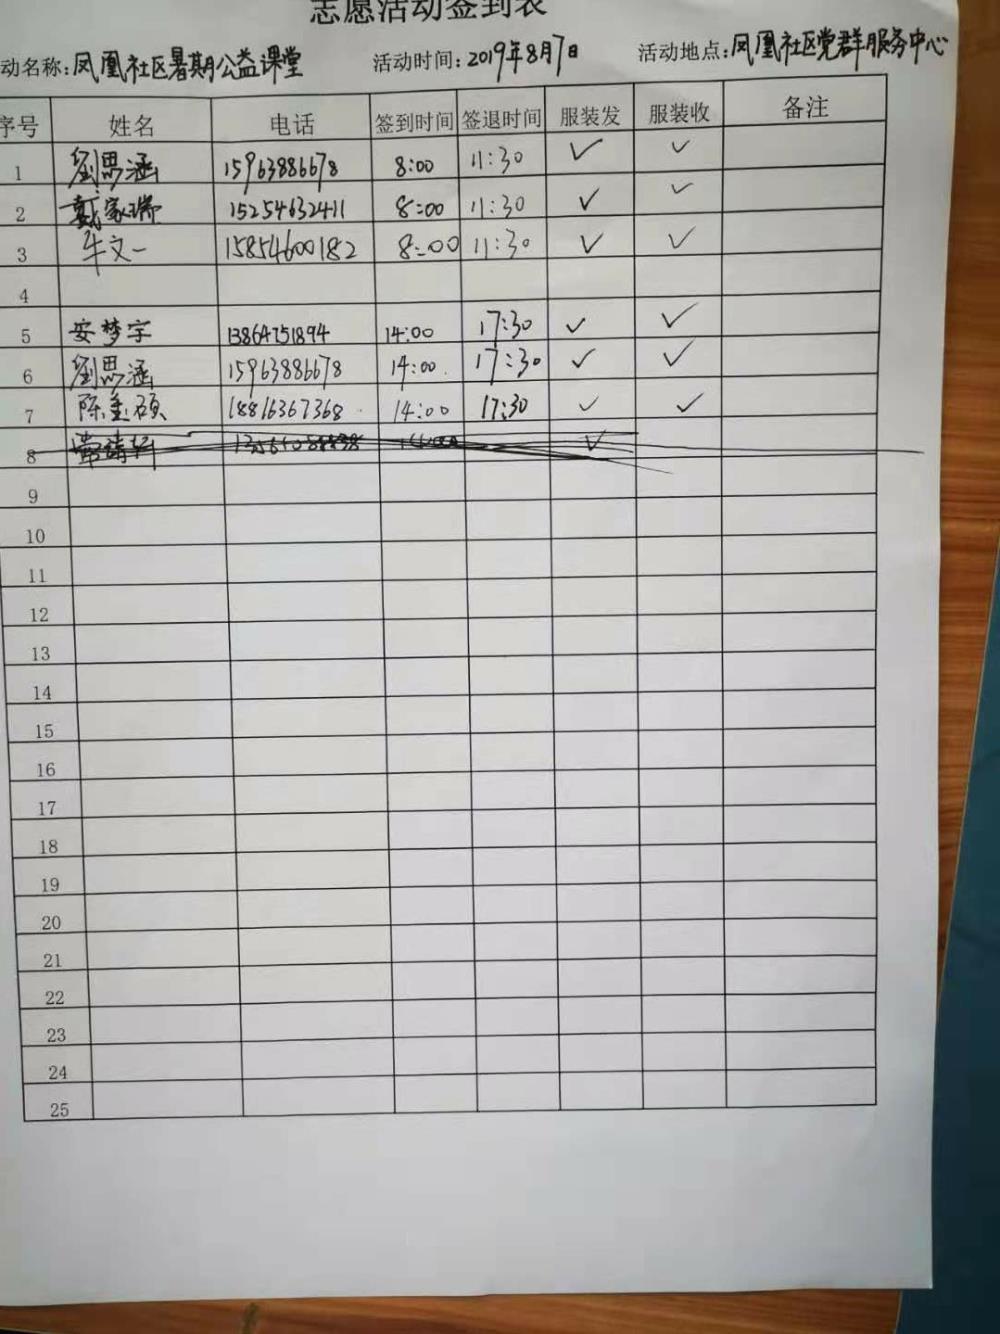 志愿活动签到表
动名称:凤凰社区暑期公益课堂 活动时间:2019年8月7日 活动地点:凤凰社区党群服务中心
序号 姓名 电话 签到时间 签退时间 服装发 服装收 备注
1 劉思涵 15963886678 8:00 11:30 ✓ ✓
2 戴家瑞 15254632411 8:00 11:30 ✓ ✓
3 牛文一 15854600182 8:00 11:30 ✓ ✓
4
5 安梦宇 13864751894 14:00 17:30 ✓ ✓
6 劉思涵 15963886678 14:00 17:30 ✓ ✓
7 陈奎硕 18816367368 14:00 17:30 ✓ ✓
8 ✓
9
10
11
12
13
14
15
16
17
18
19
20
21
22
23
24
25